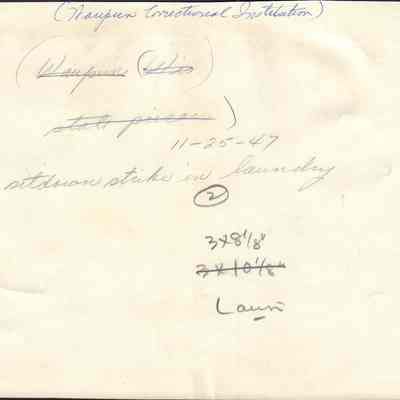 (Waupun Correctional Institution)
(Waupun (Wis
state prison)
11-25-47
sitdown strike in laundry
2
3x8 1/8"
3x10 1/8"